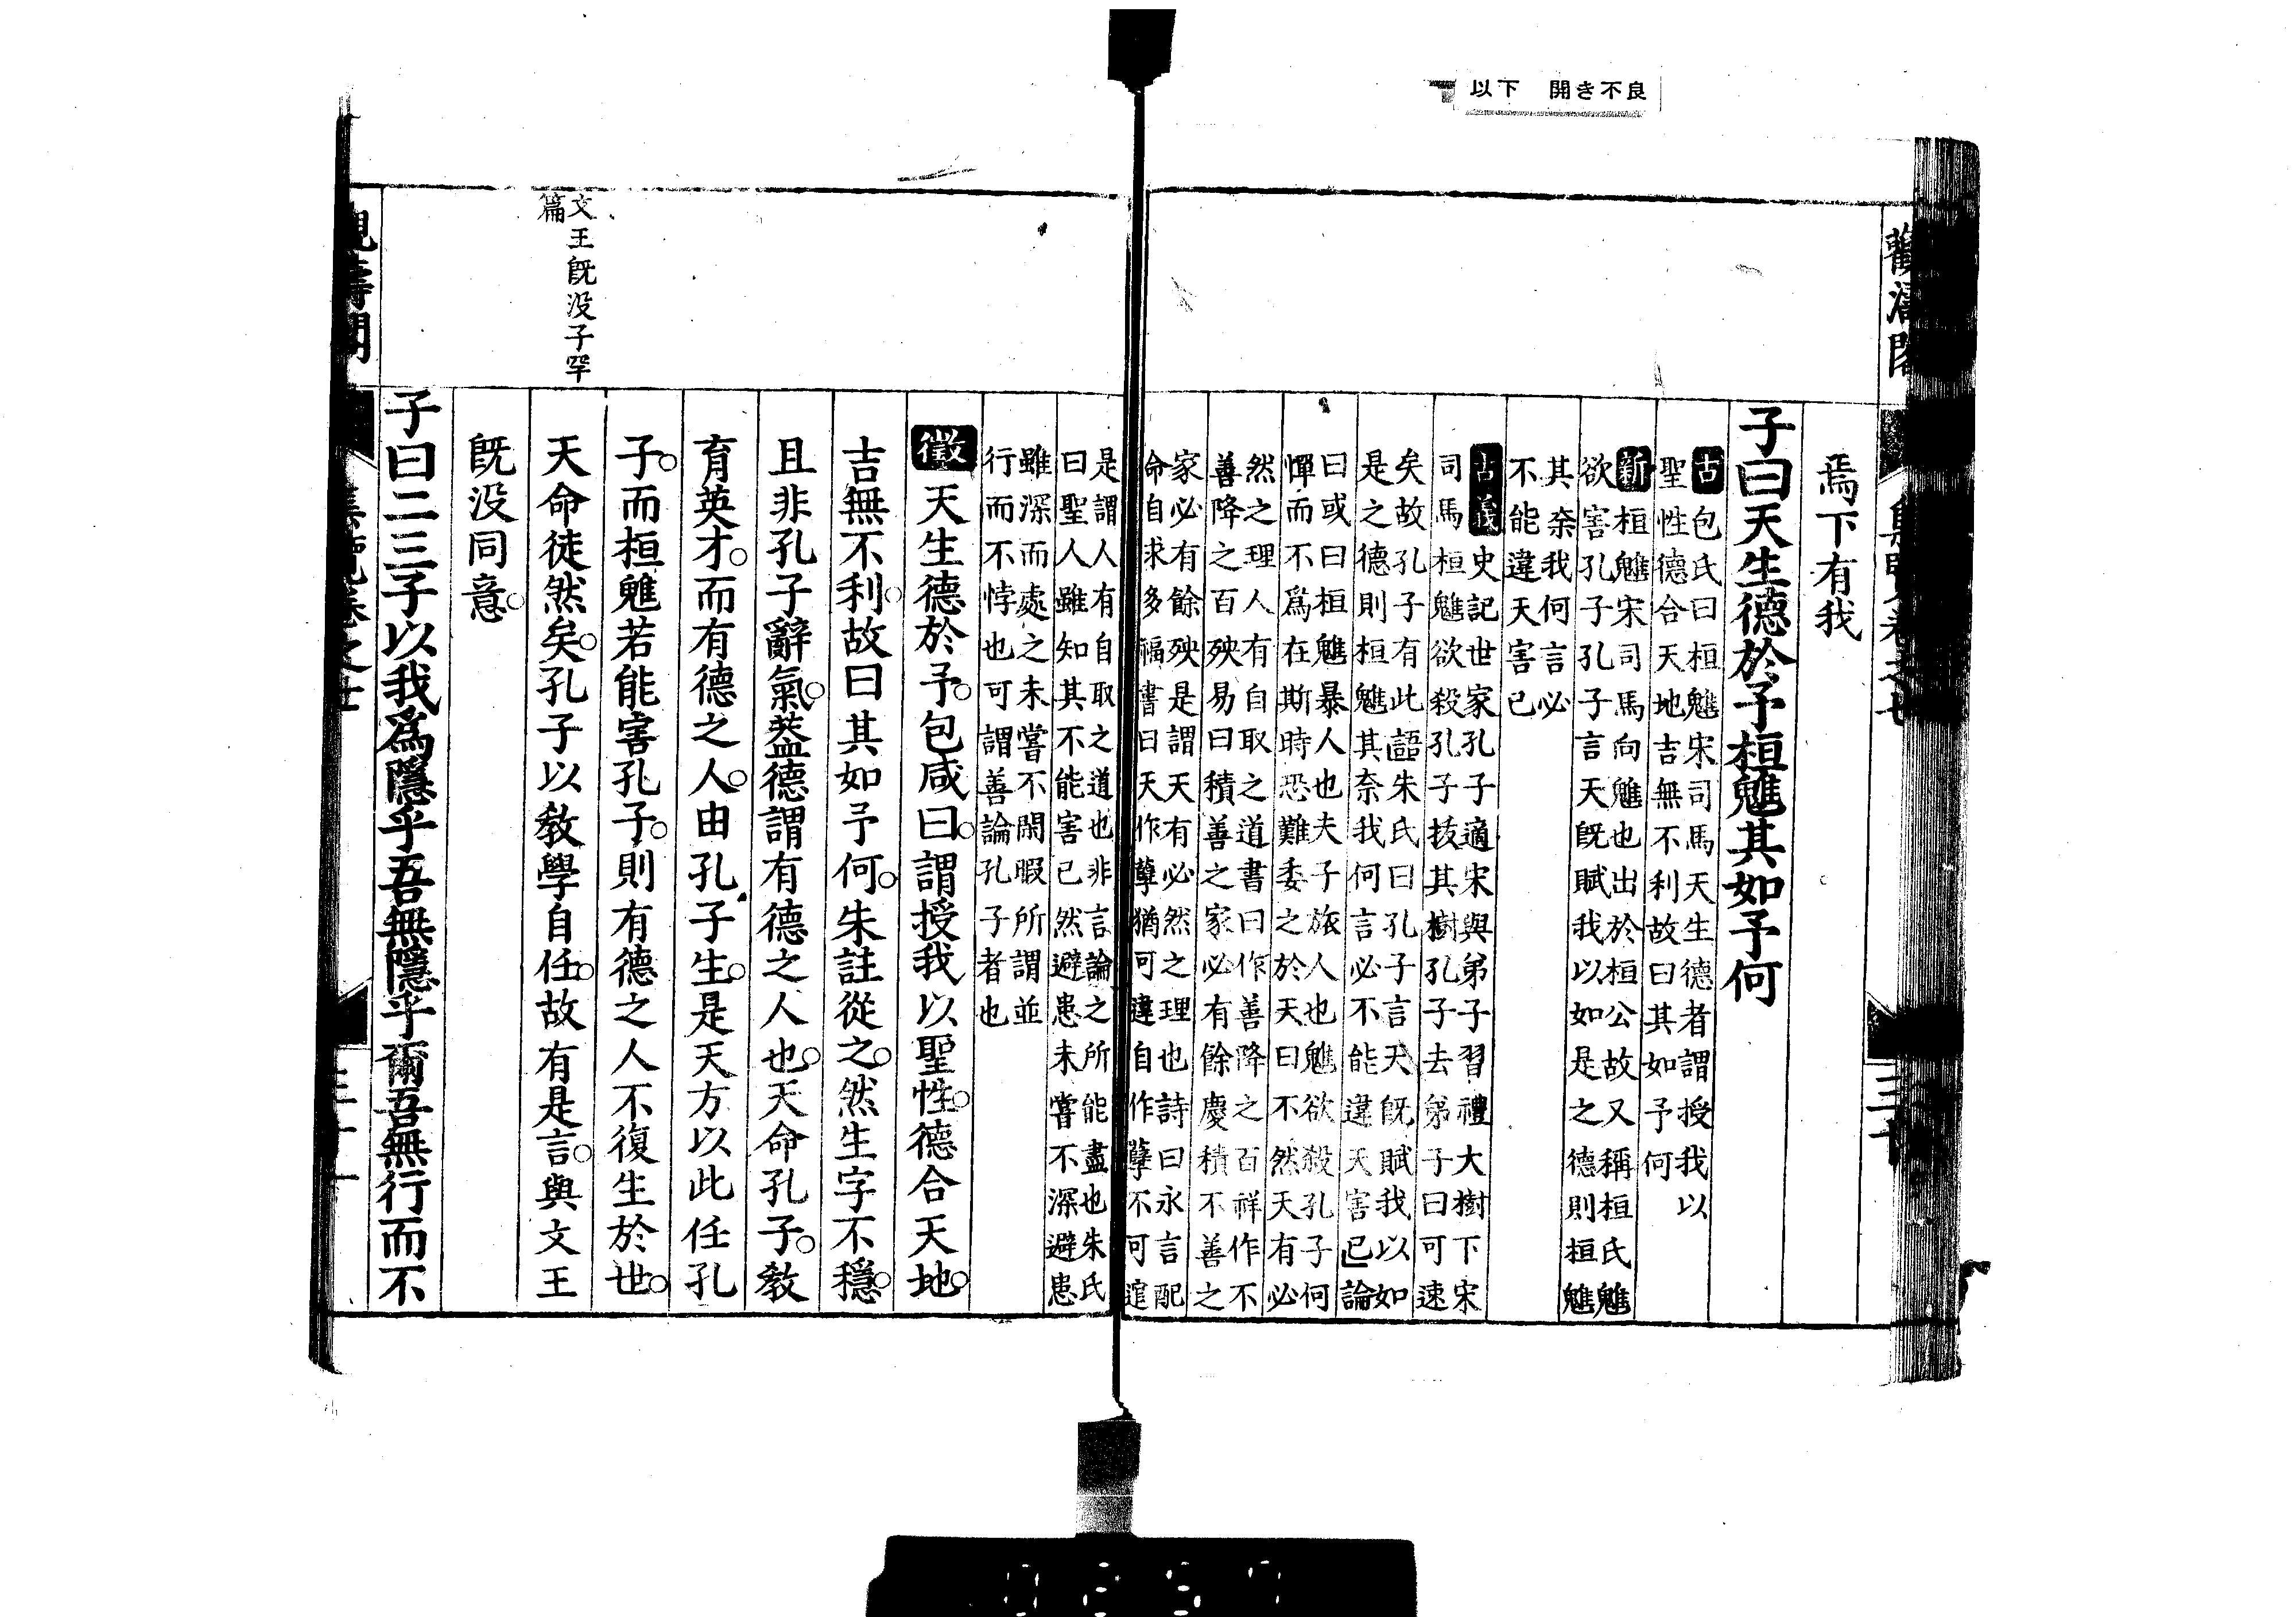 以下　開き不良
焉下有我
子曰天生德於予桓魋其如予何
古包氏曰桓魋宋司馬天生德者謂授我以
聖性德合天地吉無不利故曰其如予何
新桓魋宋司馬向魋也出於桓公故又稱桓氏魋
欲害孔子孔子言天既賦我以如是之德則桓魋
其奈我何言必
不能違天害己
古義史記世家孔子適宋與弟子習禮大樹下宋
司馬桓魋欲殺孔子拔其樹孔子去弟子曰可速
矣故孔子有此語朱氏曰孔子言天既賦我以如
是之德則桓魋其奈我何言必不能違天害己論
曰或曰桓魋暴人也夫子旅人也魋欲殺孔子何
憚而不爲在斯時恐難委之於天曰不然天有必
然之理人有自取之道書曰作善降之百祥作不
善降之百殃易曰積善之家必有餘慶積不善之
家必有餘殃是謂天有必然之理也詩曰永言配
命自求多福書曰天作孽猶可違自作孽不可逭
是謂人有自取之道也非言論之所能盡也朱氏
曰聖人雖知其不能害己然避患未嘗不深避患
雖深而處之未嘗不閑暇所謂並
行而不悖也可謂善論孔子者也
徵天生德於予。包咸曰。謂授我以聖性。德合天地。
吉無不利。故曰其如予何。朱註從之。然生字不穩。
且非孔子辭氣。葢德謂有德之人也。天命孔子。教
育英才。而有德之人。由孔子生。是天方以此任孔
子。而桓魋若能害孔子。則有德之人不復生於世。
天命徒然矣。孔子以教學自任。故有是言。與文王
既没同意。
文王既没子罕
篇
子曰二三子以我爲隱乎吾無隱乎爾吾無行而不